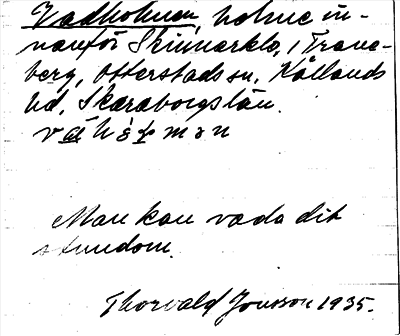 Vadholmen, holme in-
nanför Skinnarklo, i Trane-
berg, Otterstads sn, Kållands
hd, Skaraborgs län.
Man kan vada dit
stundom.
Thorvald Jonsson 1935.